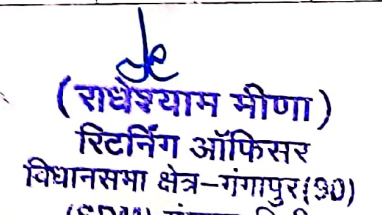 (राधेश्याम मीणा)
रिटर्निंग ऑफिसर
विधानसभा क्षेत्र–गंगापुर(90)
(SDM)